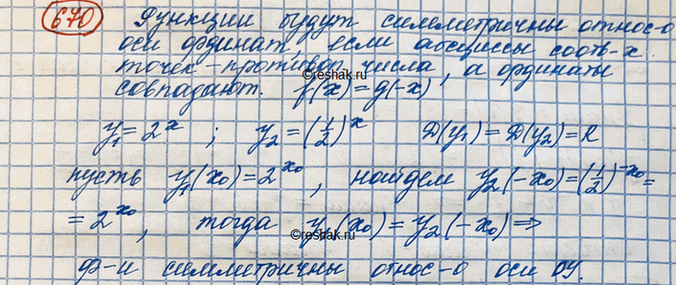 670 Функции будут симметричны относ-о
оси ординат, если абсциссы соотв-х
точек – противоп. числа, а ординаты
совпадают. f(x) = g(-x)
©reshak.ru
y₁ = 2ˣ ; y₂ = (1/2)ˣ D(y₁) = D(y₂) = R
пусть y₁(x₀) = 2^x₀, найдем y₂(-x₀) = (1/2)^-x₀ =
= 2^x₀, тогда y₁(x₀) = y₂(-x₀) ⇒
©reshak.ru
ф-и симметричны относ-о оси OY.